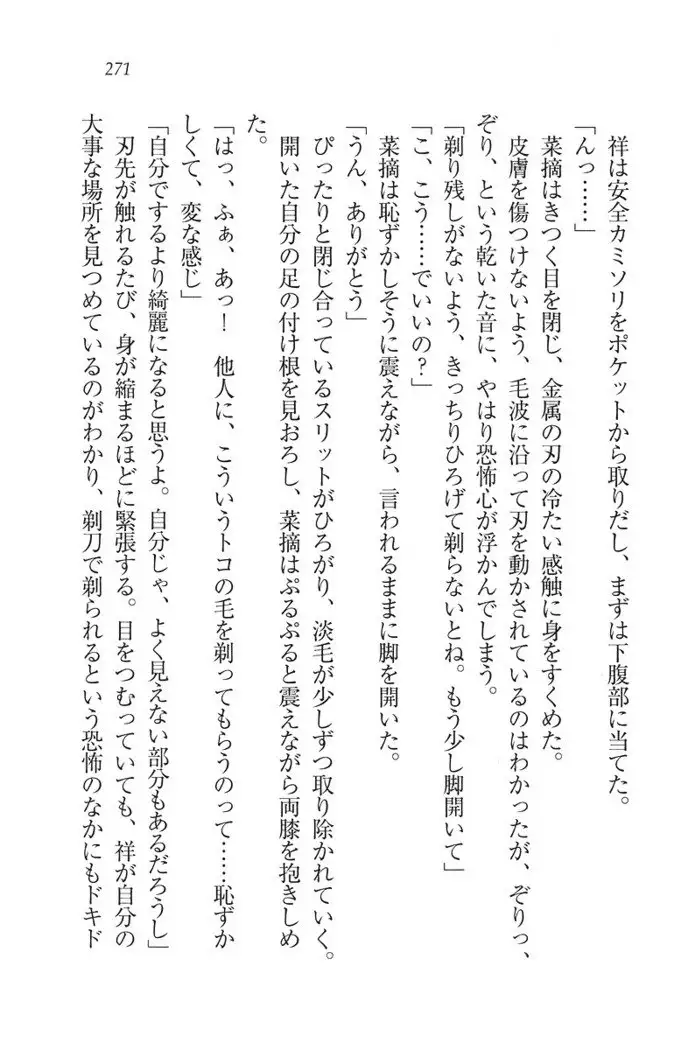 271
祥は安全カミソリをポケットから取りだし、まずは下腹部に当てた。
「んっ……」
菜摘はきつく目を閉じ、金属の刃の冷たい感触に身をすくめた。
皮膚を傷つけないよう、毛波に沿って刃を動かされているのはわかったが、ぞりっ、
ぞり、という乾いた音に、やはり恐怖心が浮かんでしまう。
「剃り残しがないよう、きっちりひろげて剃らないとね。もう少し脚開いて」
「こ、こう……でいいの？」
菜摘は恥ずかしそうに震えながら、言われるままに脚を開いた。
「うん、ありがとう」
ぴったりと閉じ合っているスリットがひろがり、淡毛が少しずつ取り除かれていく。
開いた自分の足の付け根を見おろし、菜摘はぷるぷると震えながら両膝を抱きしめ
た。
「はっ、ふぁ、あっ！　他人に、こういうトコの毛を剃ってもらうのって……恥ずか
しくて、変な感じ」
「自分でするより綺麗になると思うよ。自分じゃ、よく見えない部分もあるだろうし」
刃先が触れるたび、身が縮まるほどに緊張する。目をつむっていても、祥が自分の
大事な場所を見つめているのがわかり、剃刀で剃られるという恐怖のなかにもドキド